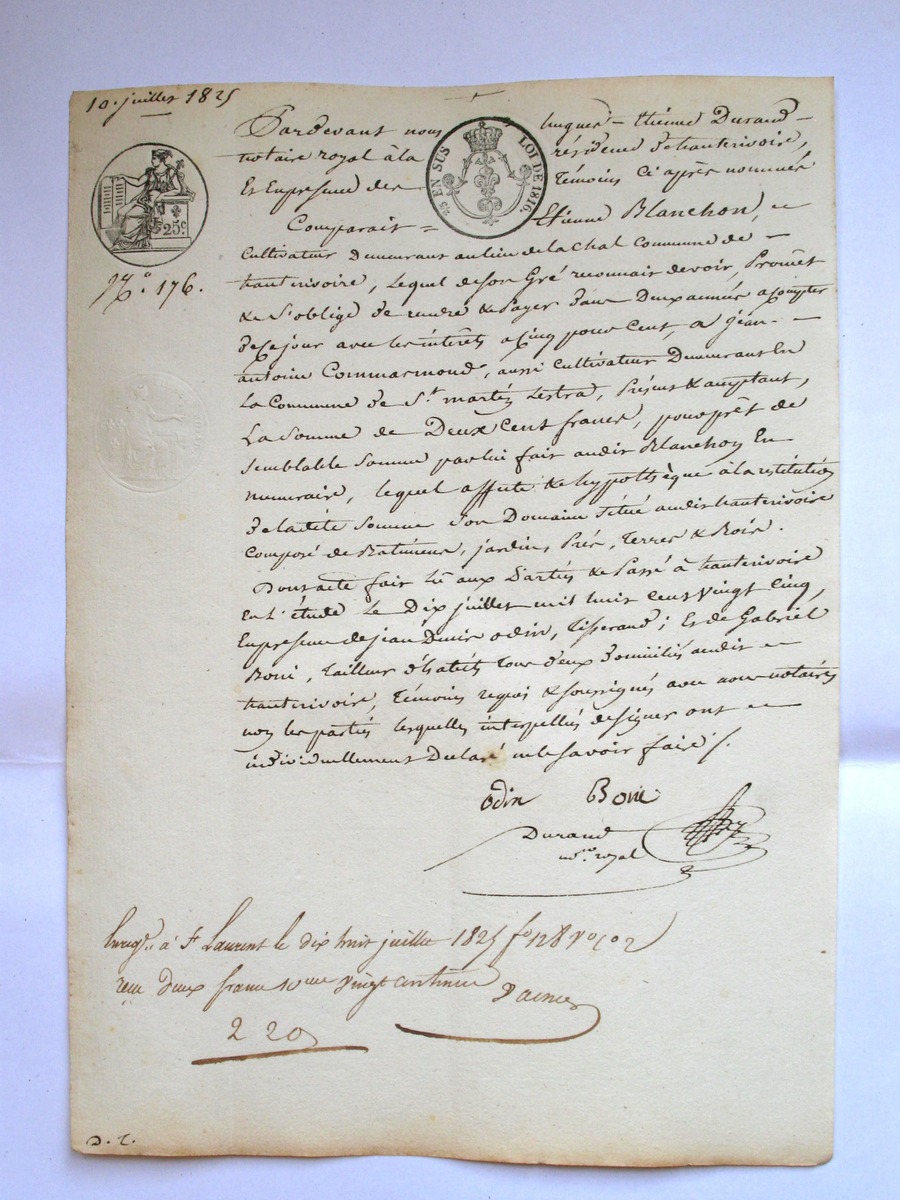 10. juillet 1825
Pardevant nous hugues – Etienne Durand –
notaire royal à la résidence d'hauterivoire,
Et En presence des témoins Ci après nommés
Comparait = Etienne Blanchon, =
Cultivateur demeurant au lieu de la Chal Commune de –
hauterivoire, lequel de son Gré reconnait devoir, Promet
& s'oblige de rendre & Payer dans Deux années a Compter
de Ce jour avec les intérêts a Cinq pour Cent, a jean –
antoine Commarmond, aussi Cultivateur Demeurant En
la Commune de St. martin Lestra, Présent & acceptant,
La Somme de Deux Cent francs, pour prêt de
semblable Somme par lui fait audit Blanchon En
numeraire, lequel affecte & hypothèque à la restitution
de ladite Somme Son Domaine situé audit hauterivoire
Composé de Batimens, jardins, Prés, Terres & Bois.
Dont acte fait lû aux Parties & Passé à hauterivoire
En l'étude le Dix juillet mil huit Cent Vingt Cinq,
En presence de jean Denis odin, tisserand; Et de Gabriel
Boni, tailleur d'habits tous deux domiciliés audit =
hauterivoire, témoins requis & soussignés avec nous notaires
non les parties lesquelles interpellées de signer ont =
individuellement Declaré ne le savoir faire /.
odin Boni
Durand
nore. royal
Enregé. à St Laurent le dix huit juillet 1825 fo 128 Vo
reçu deux francs 10eme Vingt centimes
2 20
D. T.
25 EN SUS
LOI DE 1816.
25c
No. 176.